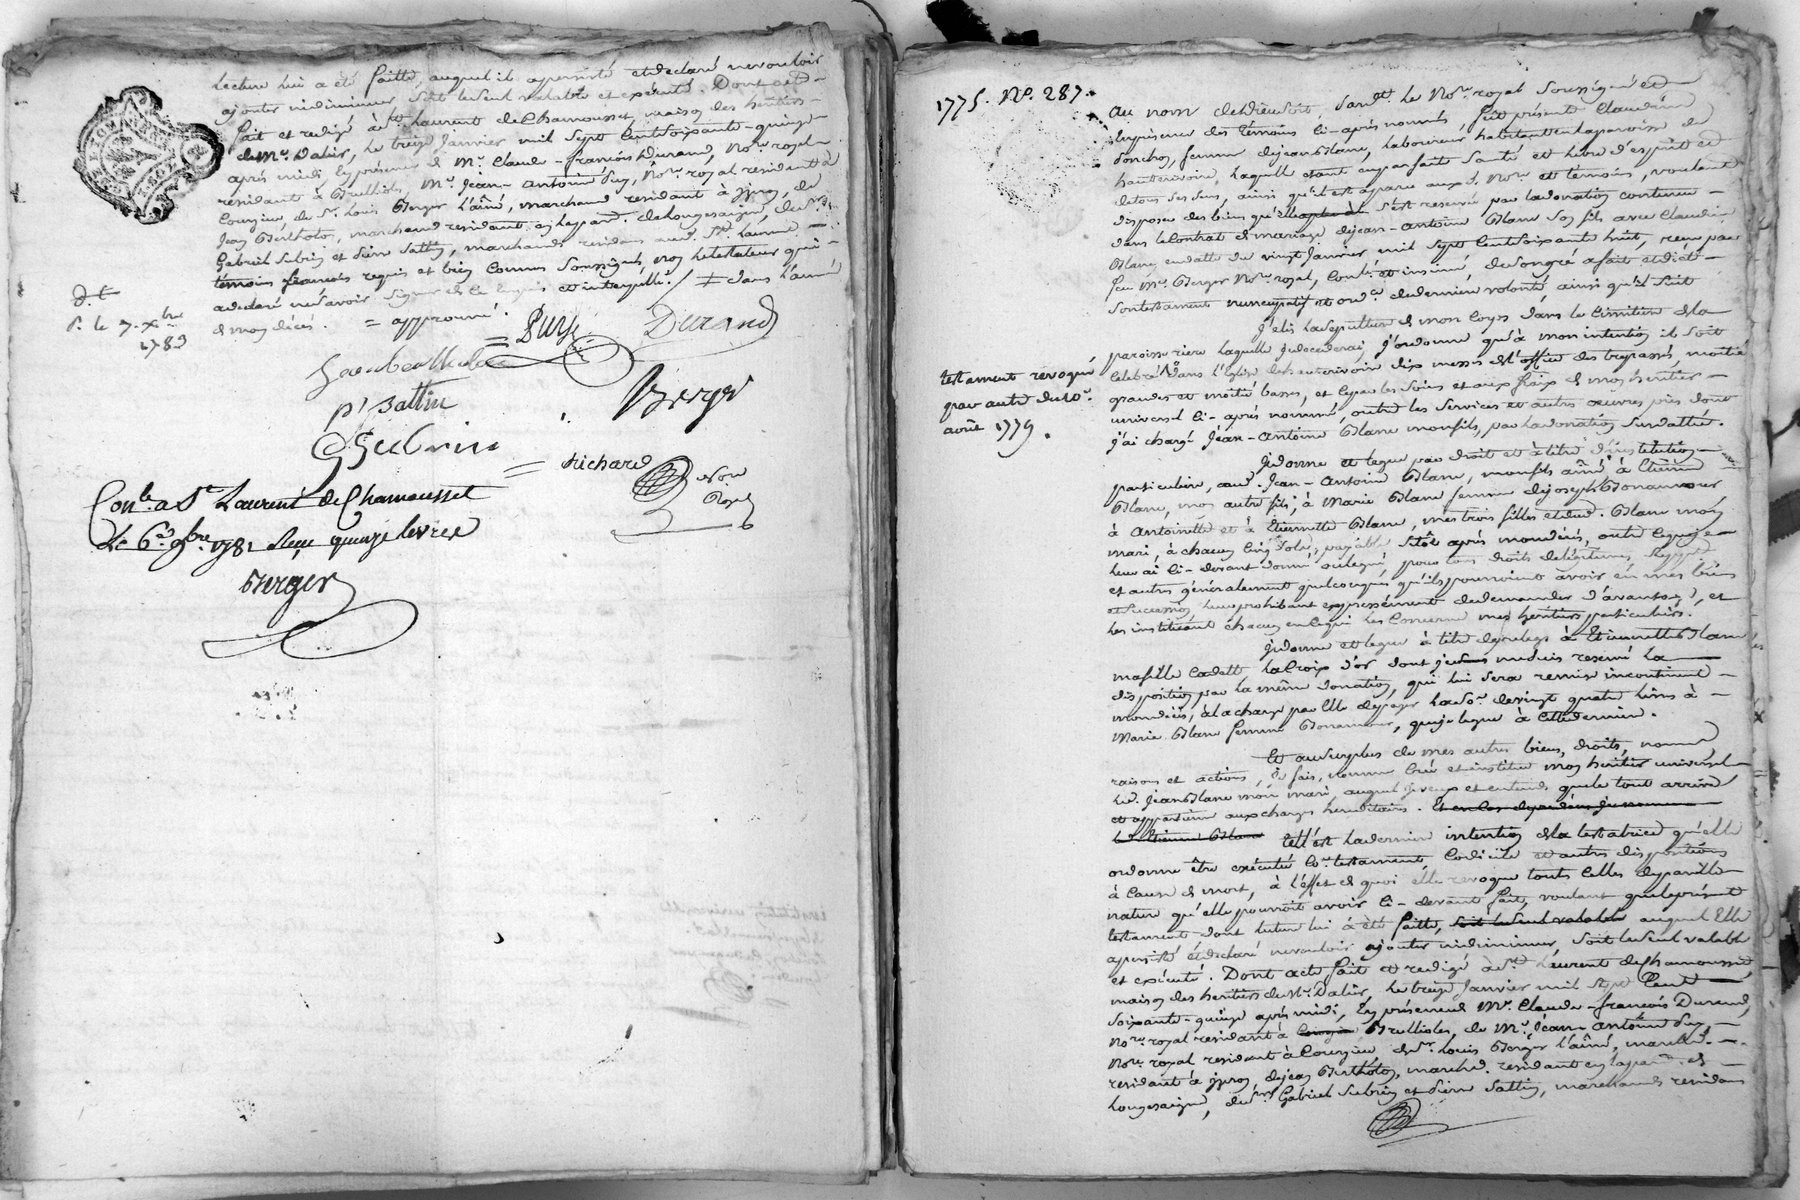 lecture lui a été faitte, auquel il a persisté et declaré ne vouloir
ajouter ni diminuer, soit le seul valable et exécuté. Dont acte
fait et redigé à St Laurent de Chamousset, maison des heritiers
de Mr. Dalier, le treize Janvier mil sept cent soixante-quinze
après midi, en présence de Mr. Claude-françois Durand, Nore royal
residant à Brullioles, Mr. Jean-Antoine Puy, Nore royal residant à
Courzieu, de Sr. Louis Berger l'aîné, marchand residant à yzeron, de
Jean Bertholon, marchand residant en la par. de Longessaigne, de Srs
Gabriel Subrin et Pierre Sattin, marchands residans aud. St. Laurent
témoins françois requis et bien connus soussignés, non le testateur qui
a declaré ne savoir signer de ce enquis et interpellé. / dans l'année
de mon décès. = approuvé.
d. t
p. le 7. xbre
1783
Puy
Durand
P. Sattin
Berger
G Subrin
Richard
Nore
Royal
Conle. a St Laurent de Chamousset
Le 6e. 9bre. 1781 Reçu quinze livres
Berger
1775. No. 287.
Au nom de Dieu soit, pardt. le Nore. royal soussigné et
en présence des témoins ci-après nommés, fut présente Claudine
Ponchon, femme de jean Blanc, laboureur habitant en la paroisse de
hauterivoire, laquelle étant en parfaite santé et libre d'esprit et
de tous ses sens, ainsi qu'il est apparu aux d. Nore et temoins, voulant
disposer des biens qu'elle s'est reservé par la donation contenue
dans le contrat de mariage de jean-antoine Blanc son fils avec Claudine
Blanc en datte du vingt Janvier mil sept cent soixante huit, reçu par
feu Me. Berger Nore. royal, conlé. et insinué, de son gré a fait et dicté
son testament nuncupatif et ordce. de derniere volonté, ainsi qu'il suit
J'elis la sepulture de mon corps dans le cimitiere de la
paroisse riere laquelle je decederai, j'ordonne qu'à mon intention il soit
celebré dans l'Eglise de hauterivoire dix messes de l'office des trepassés, moitié
grandes et moitié basses, et ce par les soins et aux fraix de mon heritier
universel ci-après nommé, outre les services et autres œuvres pies dont
j'ai chargé Jean-Antoine Blanc mon fils, par la donation susdattée.
testament revoqué
par autre du 10e.
avril 1779.
Je donne et legue par droit et à titre d'institution
particuliere, aud. Jean-Antoine Blanc, mon fils aîné, à Etienne
Blanc, mon autre fils, à Marie Blanc femme de joseph Bonnamour
à Antoinette et à Etiennette Blanc, mes trois filles et dud. Blanc mon
mari, à chacun cinq sols, payable sitôt après mon décès, outre ce que je
leur ai ci-devant donné ou legué, pour tous droits de légitimes, supplt.
et autres généralement quelconques qu'ils pourroient avoir en mes biens
et succession, leur prohibant expressément de demander d'avantage, et
les instituant chacun en ce qui les concerne mes heritiers particuliers.
Je donne et legue à titre de prelegs à Etiennette Blanc,
ma fille cadette, la croix d'or dont je me suis reservé la
disposition par la même donation, qui lui sera remise incontinent
mon décès, à la charge par elle de payer la so. de vingt quatre livres à
Marie Blanc femme Bonnamour, que je legue à cette derniere.
Et au surplus de mes autres biens, droits, noms
raisons et actions, je fais, nomme, crée et institue mon heritier universel
led. jean Blanc mon mari, auquel je veux et entends que le tout arrive
et appartienne aux charges hereditaires. Et en cas de prédécès je nomme
led. Etienne Blanc Telle est la derniere intention de la testatrice qu'elle
ordonne être exécutée co. testament, codicile et autres dispositions
à cause de mort, à l'effet de quoi elle revoque toutes celles de pareille
nature qu'elle pourroit avoir ci-devant fait, voulant que le présent
testament dont lecture lui a été faitte, soit le seul valable auquel elle
a persisté et declaré ne vouloir ajouter ni diminuer, soit le seul valable
et exécuté. Dont acte fait et redigé à St. Laurent de Chamousset
maison des heritiers de Mr. Dalier, le treize Janvier mil sept cent
soixante-quinze après midi, en présence de Mr. Claude-françois Durand,
Nore royal residant à Brullioles, de Mr. Jean-Antoine Puy,
Nore. royal residant à Courzieu, de Sr. Louis Berger l'aîné, marchd.
residant à yzeron, de jean Bertholon, marchd. residant en la par. de
Longessaigne, de Srs Gabriel Subrin et Pierre Sattin, marchands residans